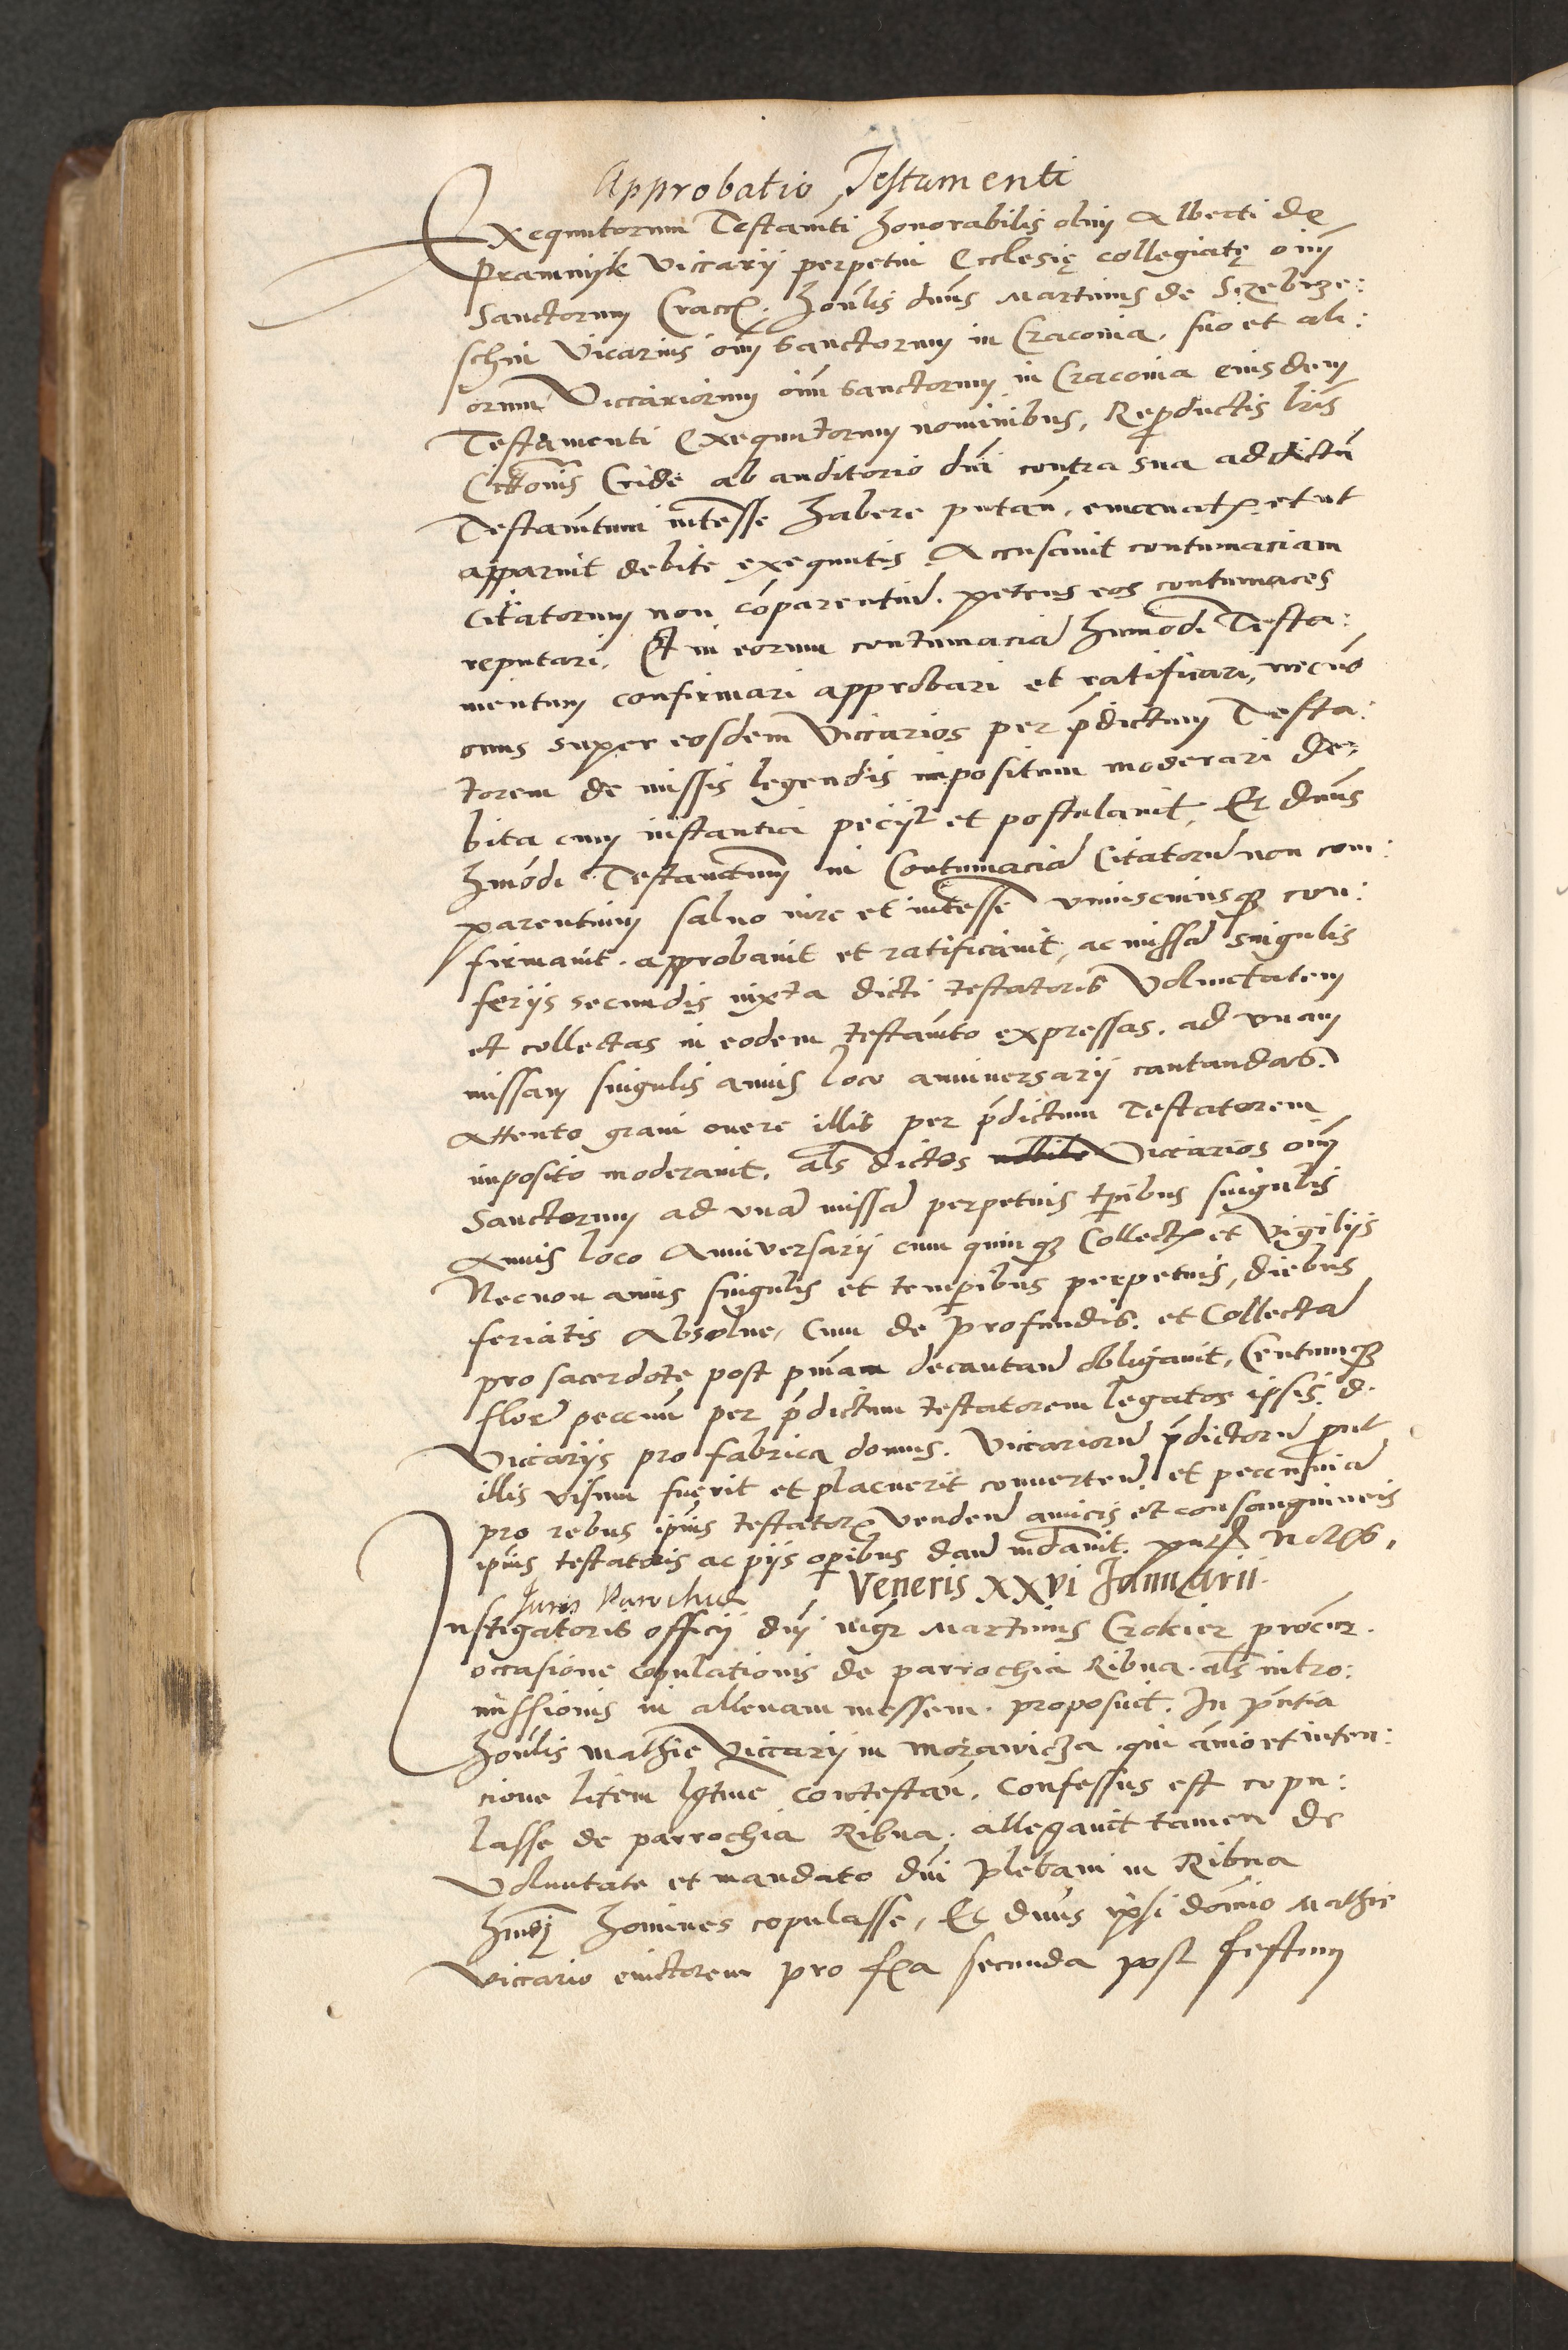 Approbatio Testamenti
Exequutorum Testamti honorabilis olim Alberti de
Pramnyk Viccarij perpetui Ecclesię collegiatę oīm
Sanctorum Crac. honlis dnus Martinus de Szebrze:
schin Vicarius oīm Sanctorum in Cracovia, suo et ali:
orum Viccariorum oīm Sanctorum in Cracovia eiusdem
Testamenti Exequutorum nominibus, Reproductis lris
Citaōnis Cride ab auditorio dni contra sua ad dictū
Testamtum intesse habere putan, emanat et ut
apparuit debite exequutis Accusavit contumaciam
citatorum non cōparentiū. petens eos contumaces
reputari. Et in eorum contumaciā humodi Testa:
mentum confirmari approbari et ratificari, necnō
onus super eosdem Viccarios per pdictum Testa:
torem de missis legendis impositum moderari de:
bita cum instantia peciit et postulavit, Et dnus
hmōdi Testamtum in Contumaciā Citatorū non com:
parentium salvo iure et intesse uniuscuiusq con:
firmavit. approbavit et ratificavit, ac missā singulis
ferijs secundis iuxta dicti testatoris Voluntatem
et collectas in eodem testamto expressas. ad unam
missam singulis annis loco anniversarij cantandas.
Attento gravi onere illis per pdictum Testatorem
imposito moderavit. als dictos Viccarios oīm
Sanctorum ad unā missā perpetuis tpibus singulis
Annis loco Anniversarij cum quinq Collect et Vigilijs
Necnon annis singulis et temporibus perpetuis, diebus
feriatis Absolve, Cum de profundis. et Collectā
pro sacerdote post pmam decantan obligavit, Centumq
flor peccun per pdictum testatorem legatos ipsis d.
Viccarijs pro fabrica domus. Viccariorū pdictorū put
illis visum fuerit et placuerit converten et peccuniā
pro rebus ipius testator venden amicis et consanguineis
ipius testatoris ac pijs opibus dan mdavit. pntt Nots.
Veneris XXVI Januarii.
Juris Parochial
Instigatoris officij dni mgr Martinus Crokier procur.
occasione copulationis de parrochia Ribna. als intro:
missionis in alienam messem. proposuit. In pntia
honlis Mathie Viccarij in Morawicza. qui aīo et inten:
cione litem lgtme contestan. Confessus est copu:
lasse de parrochia Ribna. allegavit tamen de
Voluntate et mandato dni Plebani in Ribna
hmōi homines copulasse, Et dnus ipsi domino Mathie
Viccario evictorem pro fia secunda post festum